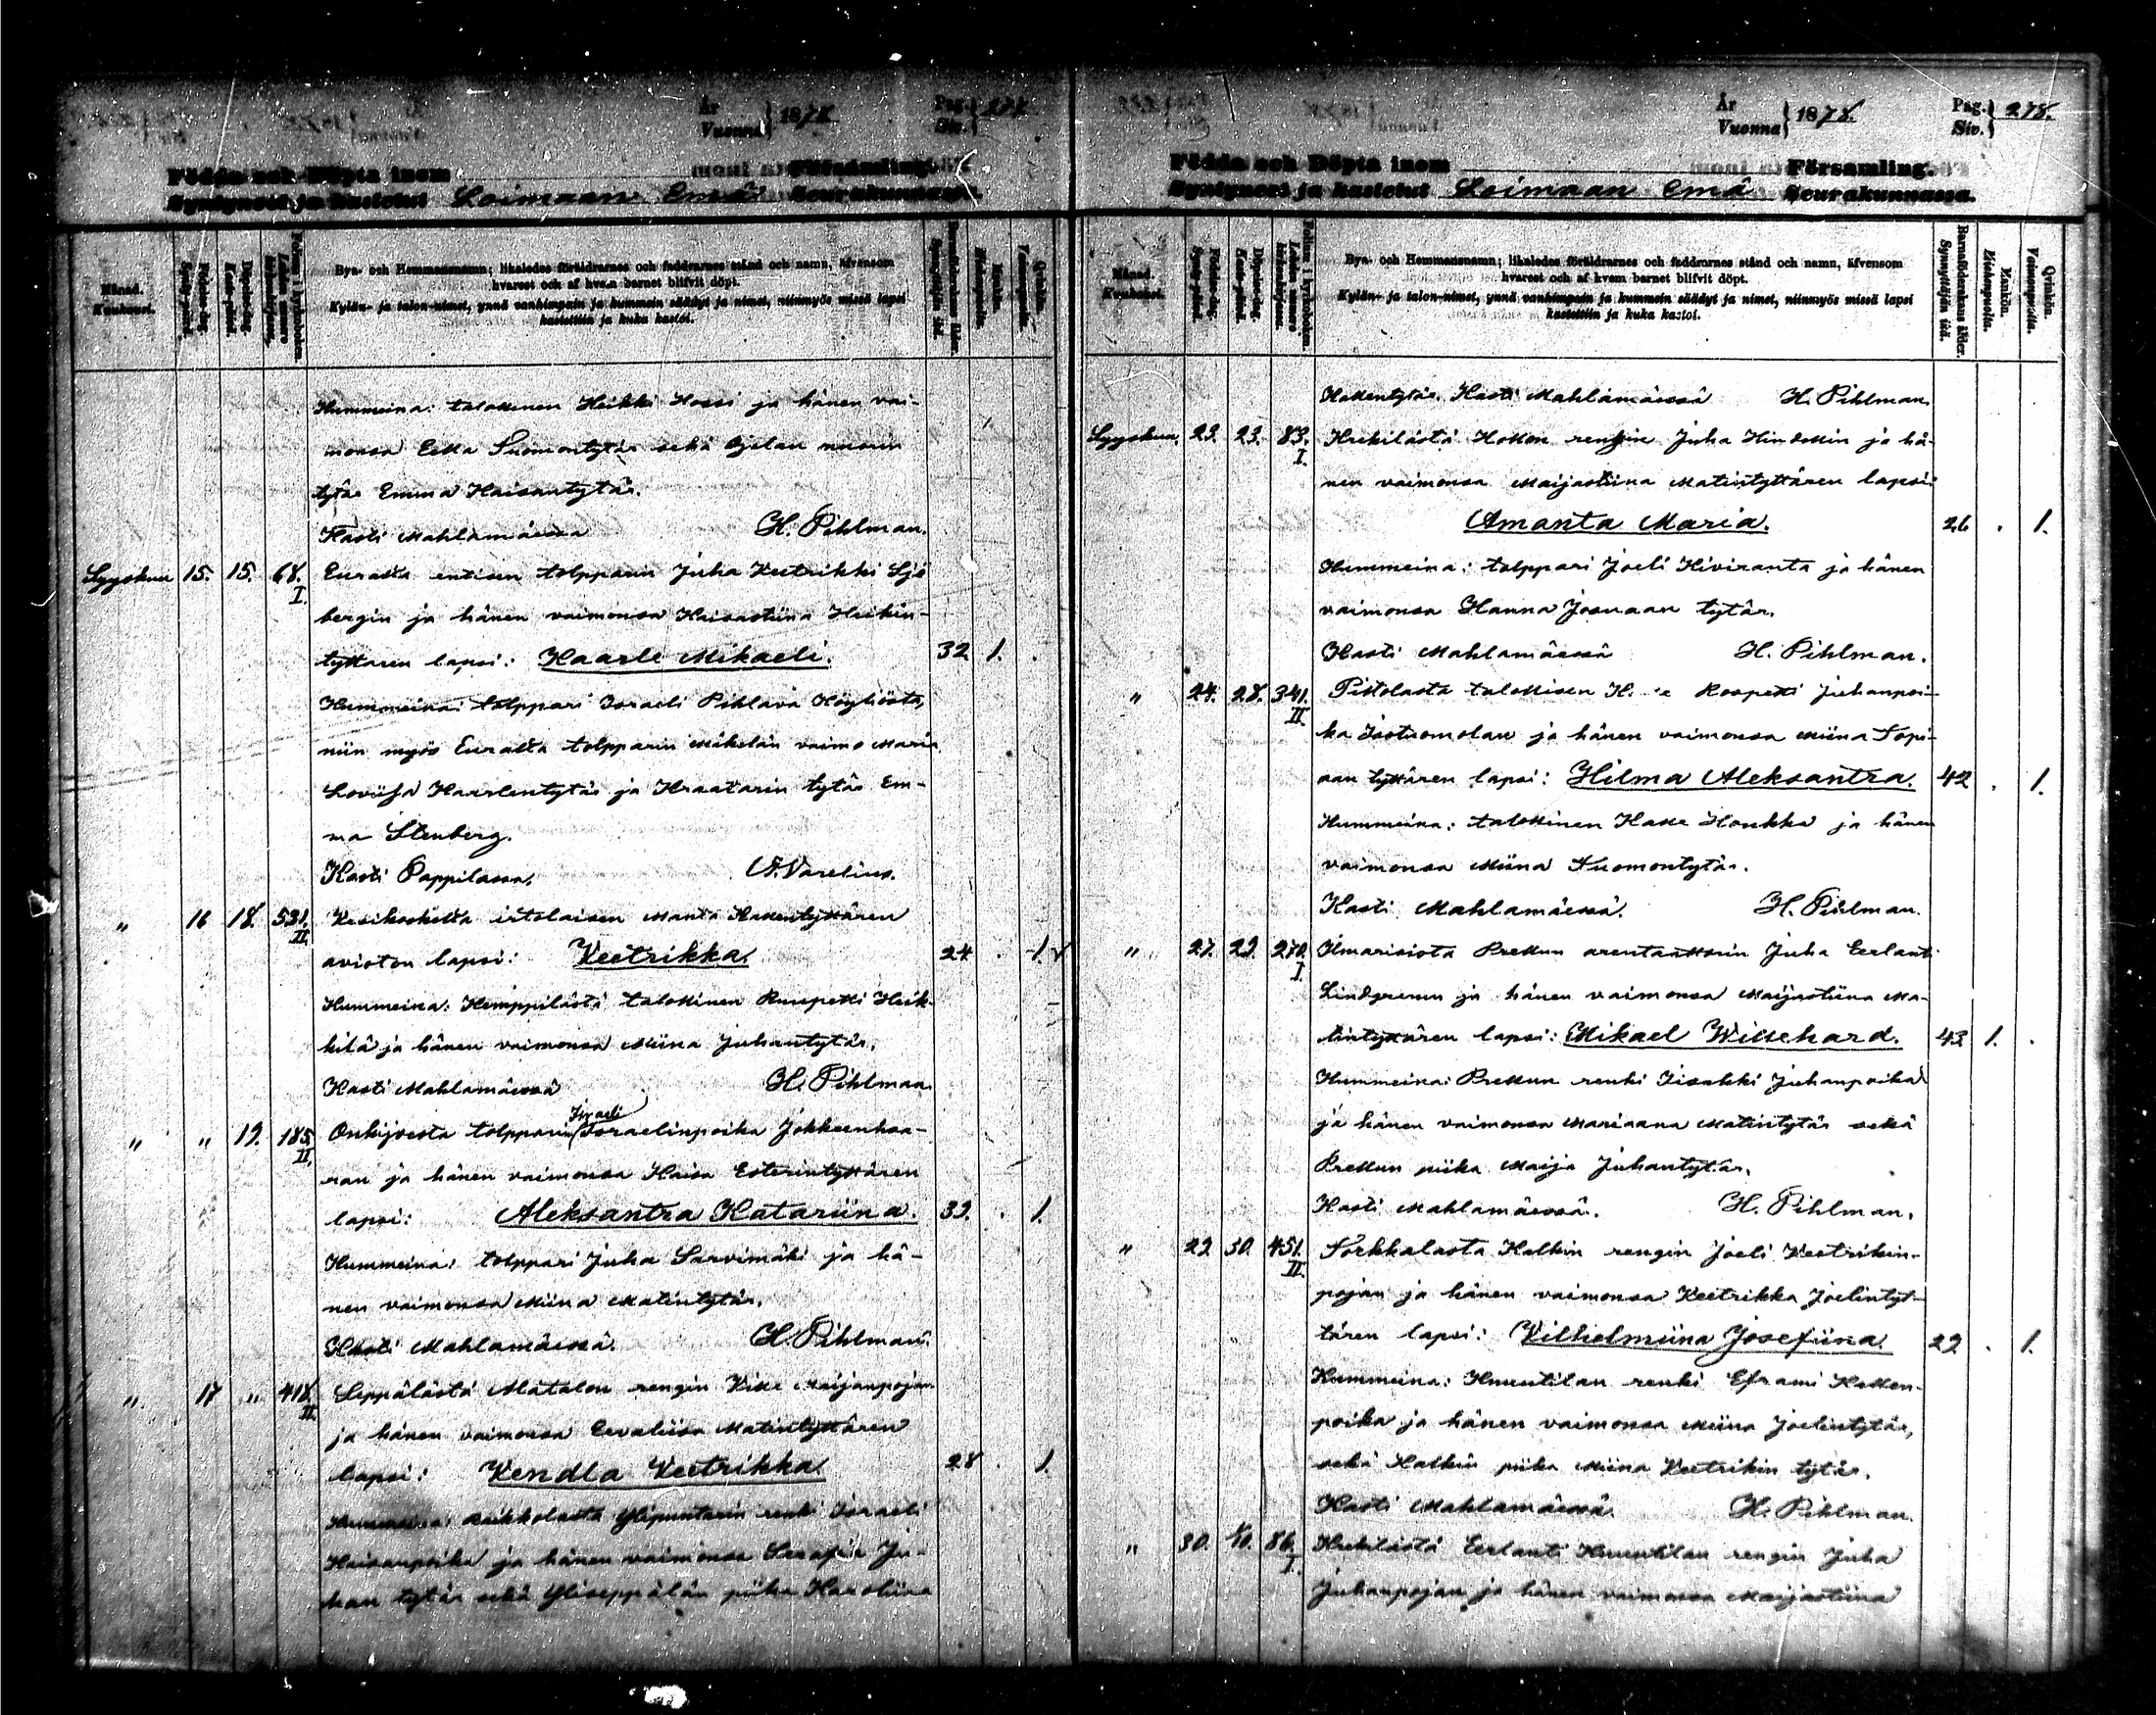 År
Vuonna } 1878.
Pag.
Siv. } 277
Födda och Döpta inom Församling.
Syntyneet ja kastetut Loimaan Emä Seurakunnassa.
Månad.
Kuukausi.
Födelse-dag.
Synty-päivä.
Döpelse-dag.
Kaste-päivä.
Folium i kyrkoboken.
Lehden numero kirkonkirjassa.
Bya- och Hemmansnamn; likaledes föräldrarnes och faddrarnes stånd och namn, äfvensom
hvarest och af hvem barnet blifvit döpt.
Kylän- ja talon-nimet, ynnä vanhimpain ja kummein säädyt ja nimet, niinmyös missä lapsi
kastettiin ja kuka kastoi.
Barnföderskans ålder.
Synnyttäjän ikä.
Mankön.
Miehenpuolia.
Qvinkön.
Vaimonpuolia.
Kummeina: talollinen Heikki Kossi ja hänen vai-
monsa Eeva Tuomontytär sekä Ojalan nuorin
tytär Emma Kaisantytär.
Kasti Mahlamäessä H. Pihlman.
Syyskuu 15. 15. 68. I. Eurasta entisen torpparin Juha Veetrikki Sjö
bergin ja hänen vaimonsa Kaisastiina Heikin-
tyttären lapsi: Kaarle Mikaeli. 32 1. .
Kummeina: torppari Israeli Pihlava Köyliöstä,
niin myös Eurasta torpparin Mäkelän vaimo Maria
Loviisa Kaarlentytär ja Kraatarin tytär Em-
ma Stenberg.
Kasti Pappilassa. N. Varelius.
" 16 18. 531. II. Vesikoskelta irtolaisen Manta Kallentyttären
avioton lapsi: Veetrikka. 24 . 1.
Kummeina: Kemppilästä talollinen Ruupetti Heik-
kilä ja hänen vaimonsa Miina Juhantytär.
Kasti Mahlamäessä H. Pihlman.
" " 19. 185. II. Onkijoesta torpparin Israeli Israelinpoika Jokkeenhaa-
ran ja hänen vaimonsa Kaisa Esterintyttären
lapsi: Aleksantra Katariina. 39. . 1.
Kummeina: torppari Juha Sarvimäki ja hä-
nen vaimonsa Miina Matintytär.
Kasti Mahlamäessä. H. Pihlman.
" 17 " 418. II. Seppälästä Alatalon rengin Ville Maijanpojan
ja hänen vaimonsa Eevaliisa Matintyttären
lapsi: Vendla Veetrikka. 28 . 1.
Kummeina: Raikkolasta Ylipuntarin renki Israeli
Kaisanpoika ja hänen vaimonsa Serafia Ju-
han tytär sekä Yliseppälän piika Karoliina
År
Vuonna } 1878.
Pag.
Siv. } 278.
Födda och Döpta inom Församling.
Syntyneet ja kastetut Loimaan emä Seurakunnassa.
Månad.
Kuukausi.
Födelse-dag.
Synty-päivä.
Döpelse-dag.
Kaste-päivä.
Folium i kyrkoboken.
Lehden numero kirkonkirjassa.
Bya- och Hemmansnamn; likaledes föräldrarnes och faddrarnes stånd och namn, äfvensom
hvarest och af hvem barnet blifvit döpt.
Kylän- ja talon-nimet, ynnä vanhimpain ja kummein säädyt ja nimet, niinmyös missä lapsi
kastettiin ja kuka kastoi.
Barnföderskans ålder.
Synnyttäjän ikä.
Mankön.
Miehenpuolia.
Qvinkön.
Vaimonpuolia.
Kallentytär. Kasti Mahlamäessä H. Pihlman.
Syyskuu, 23. 23. 83. I. Krekilästä rengin Juha ja hä-
nen vaimonsa Maijastiina Matintyttären lapsi:
Amanta Maria. 26 . 1.
Kummeina: torppari Joeli Kiviranta ja hänen
vaimonsa Hanna Joonaan tytär.
Kasti Mahlamäessä H. Pihlman.
" 24. 28. 341. II. talollisen Roopetti Juhanpoi-
ka Isotuomolan ja hänen vaimonsa Miina Topi-
aan tyttären lapsi: Hilma Aleksantra. 42 . 1.
Kummeina: talollinen Kalle Honkka ja hänen
vaimonsa Miina Tuomontytär.
Kasti Mahlamäessä. H. Pihlman.
" 27. 29. 270. I. Ilmarisista Prellun arentaattorin Juha Eerlanti
Lindgrenin ja hänen vaimonsa Maijastiina Ma-
tintyttären lapsi: Mikael Willehard. 43 1. .
Kummeina: Prellun renki Iisakki Juhanpoika
ja hänen vaimonsa Mariaana Matintytär sekä
Prellun piika Maija Juhantytär.
Kasti Mahlamäessä. H. Pihlman.
" 29. 30. 451. II. Torkkalasta Kalkin rengin Joeli Veetrikin-
pojan ja hänen vaimonsa Veetrikka Joelintyt-
tären lapsi: Vilhelmiina Josefiina. 29 . 1.
Kummeina: renki Eframi Kallen-
poika ja hänen vaimonsa Miina Joelintytär,
sekä Kalkin piika Miina Veetrikin tytär.
Kasti Mahlamäessä. H. Pihlman.
" 30. 1/10. 86. I. Krekilästä Eerlanti rengin Juha
Juhanpojan ja hänen vaimonsa Maijastiina